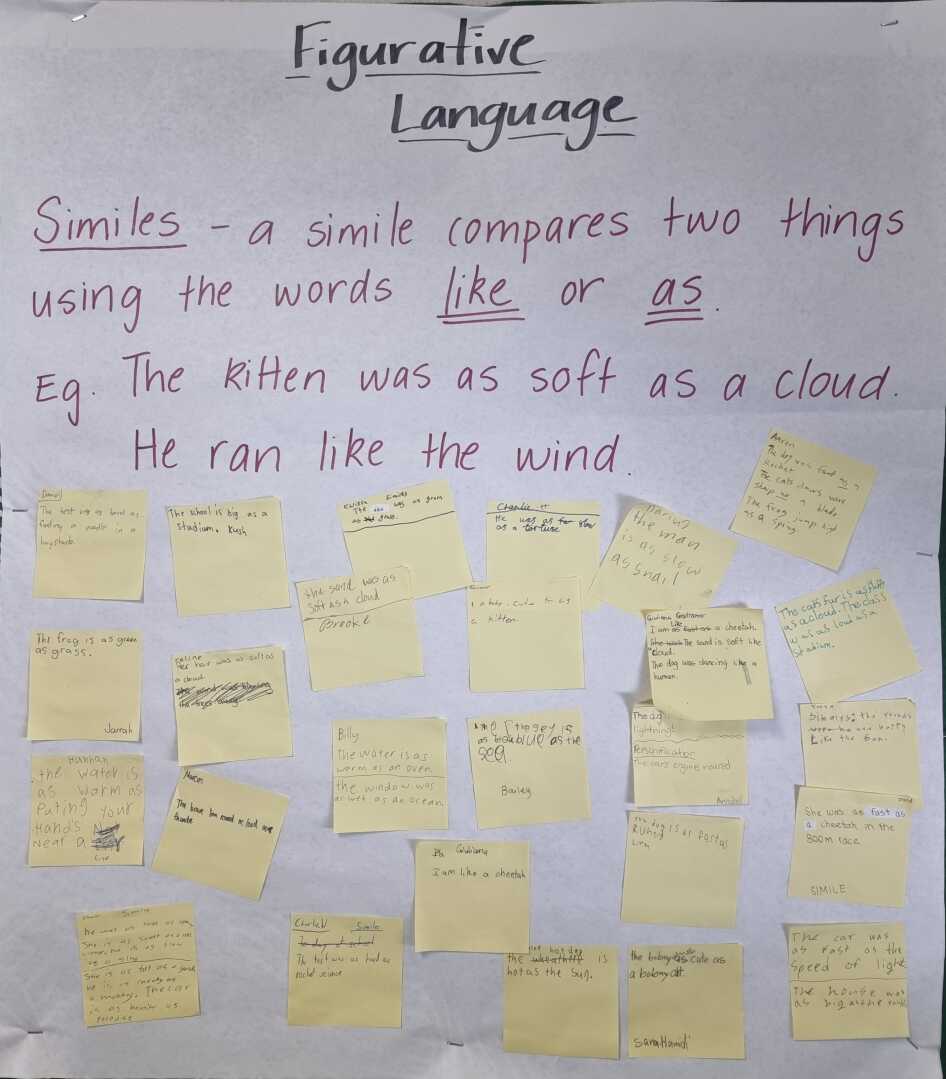 Figurative
Language
Similes - a simile compares two things
using the words like or as.
Eg. The kitten was as soft as a cloud.
He ran like the wind.
Aaron
The dog was fast as a
Rocket
The cats claws were
Sharp as a blade
The frog jump high
as a spring
Daniel
The test was as hard as
finding a needle in a
haystack.
The school is big as a
stadium. Kush
Similes
The was as green
as grass.
Charlie H
He was as slow
as a tortuse
the man
is as slow
as snail
the sand was as
soft as a cloud
Brooke
a kitten
Giuliana
Like
I am as fast as a cheetah
The sand is soft like
cloud.
The dog was dancing like a
human.
The cats fur is as fluffy
as a cloud. The class
was as loud as a
stadium.
The frog is as green
as grass.
Jarrah
Her hair was as soft as
a cloud.
Billy
The water is as
warm as an oven.
the window was
as wet as an ocean.
is
as blue as the
sea.
Bailey
The
lightning
Personification
The cars engine roared
Annabel
Like the Sun.
Hannah
the water is
as warm as
Puting your
Hand's
Near a
Fire
Marcus
The have been round as
She was as fast as
a cheetah in the
800m race
SIMILE
The dog is as fast as
Giuliana
I am like a cheetah
Simile
He was as
She is as sweet as
as slow
She is as tall as a
a monkey. The car
is as
Charlie V Simile
The test was as hard as
rocket science
hot dog
the is
hot as the Sun.
the bolony is as cute as
a bolony cat
Sara Hamdi
The car was
as fast as the
speed of light
The house was
as big as the